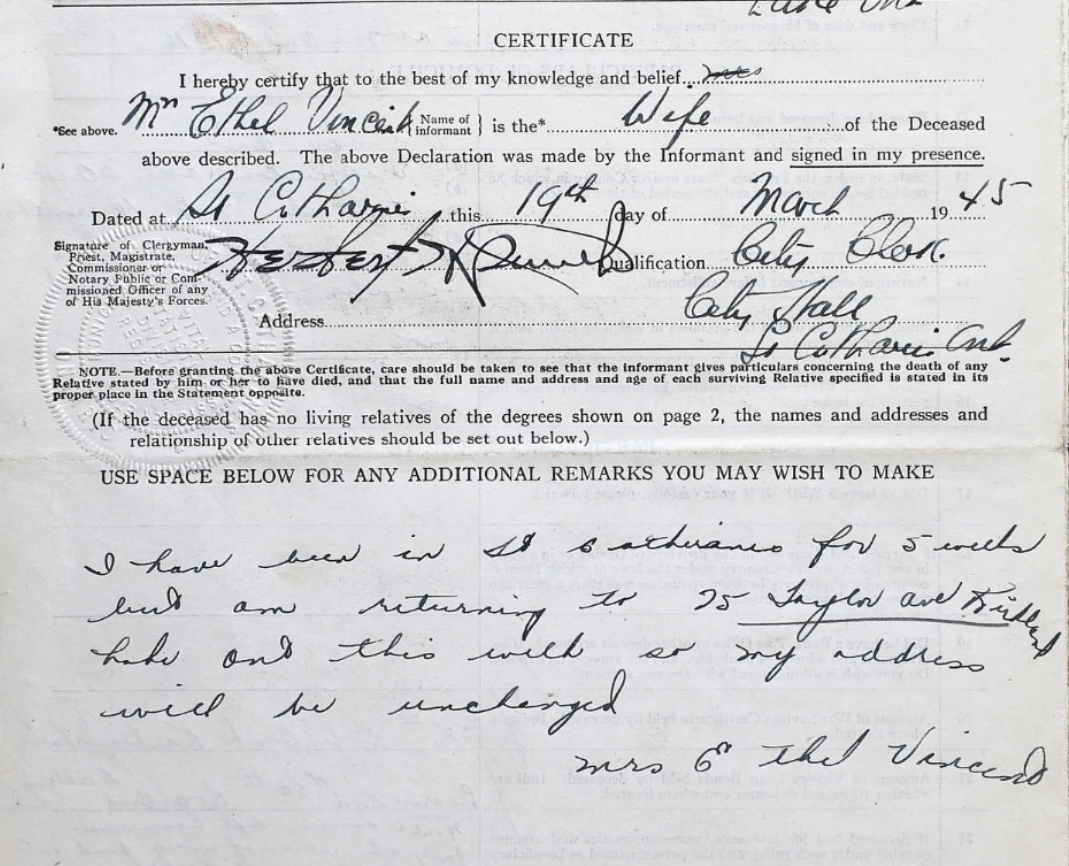 CERTIFICATE
I hereby certify that to the best of my knowledge and belief
*See above. Mrs Ethel Vincent { Name of informant } is the* Wife of the Deceased
above described. The above Declaration was made by the Informant and signed in my presence.
Dated at St Catharines this 19th day of March 1945
Signature of Clergyman,
Priest, Magistrate,
Commissioner or
Notary Public or Com-
missioned Officer of any
of His Majesty's Forces.
Herbert H Qualification City Clerk.
Address City Hall
St Catharines Ont.
NOTE.—Before granting the above Certificate, care should be taken to see that the informant gives particulars concerning the death of any
Relative stated by him or her to have died, and that the full name and address and age of each surviving Relative specified is stated in its
proper place in the Statement opposite.
(If the deceased has no living relatives of the degrees shown on page 2, the names and addresses and
relationship of other relatives should be set out below.)
USE SPACE BELOW FOR ANY ADDITIONAL REMARKS YOU MAY WISH TO MAKE
I have been in St Catharines for 5 weeks
but am returning to 25 Taylor ave Kirkland
lake ont this week so my address
will be unchanged
Mrs Ethel Vincent